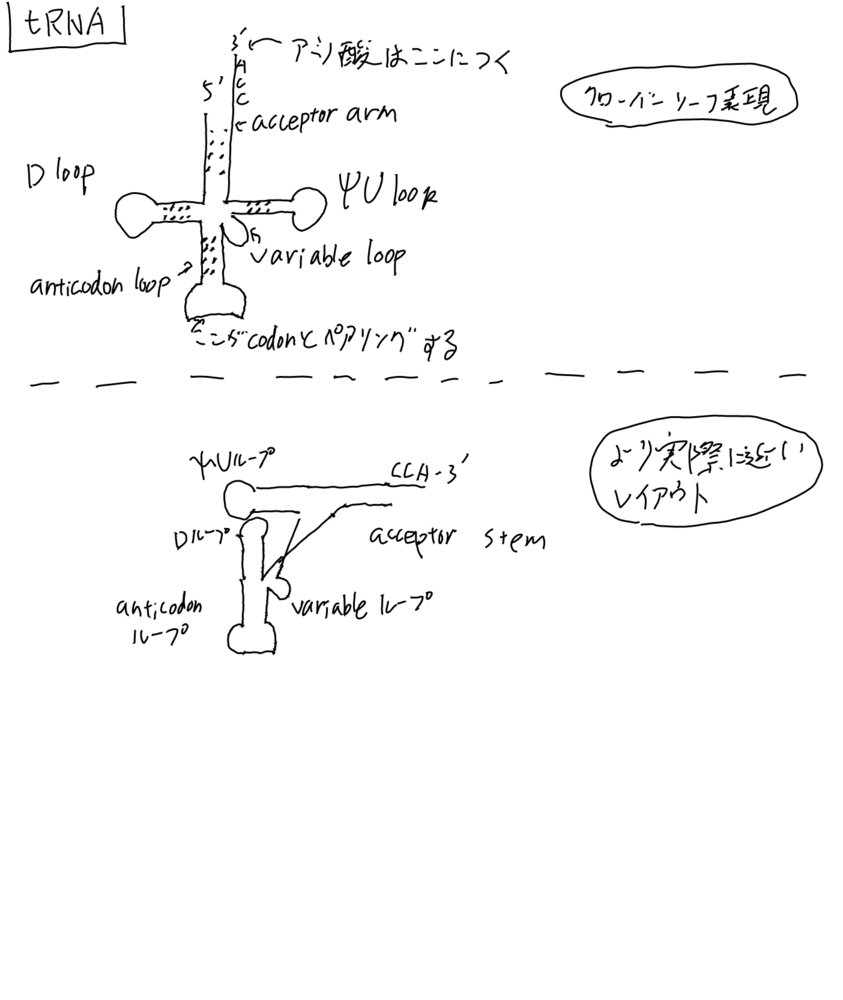 tRNA
3' ← アミノ酸はここにつく
A
C
C
5'
クローバーリーフ表現
← acceptor arm
D loop
ΨU loop
variable loop
anticodon loop
ここがcodonとペアリングする
ΨUループ
CCA-3'
より実際に近い
レイアウト
Dループ
acceptor stem
anticodon
ループ
variable ループ